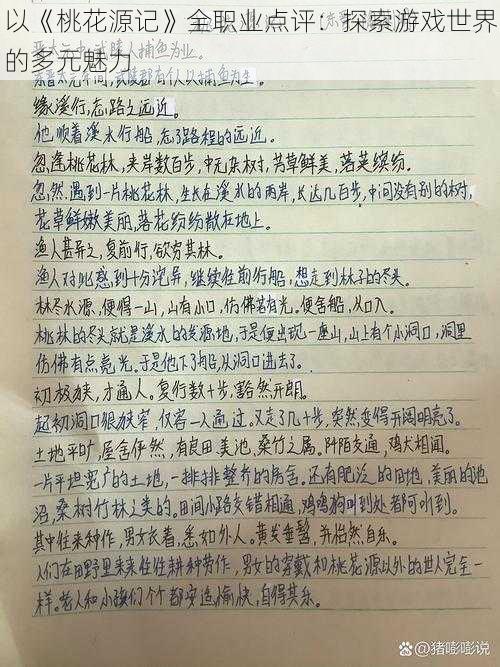 以《桃花源记》全职业点评：探索游戏世界
的多元魅力
缘溪行，忘路之远近。
他顺着溪水行船，忘了路程的远近。
忽逢桃花林，夹岸数百步，中无杂树，芳草鲜美，落英缤纷。
忽然遇到一片桃花林，生长在溪水的两岸，长达几百步，中间没有别的树，
花草鲜嫩美丽，落花纷纷散在地上。
渔人甚异之，复前行，欲穷其林。
渔人对此感到十分诧异，继续往前行船，想走到林子的尽头。
林尽水源，便得一山，山有小口，仿佛若有光。便舍船，从口入。
桃林的尽头就是溪水的发源地，于是便出现一座山，山上有个小洞口，洞里
仿佛有点亮光。于是他下了船，从洞口进去了。
初极狭，才通人。复行数十步，豁然开朗。
起初洞口很狭窄，仅容一人通过。又走了几十步，突然变得开阔明亮了。
土地平旷，屋舍俨然，有良田美池，桑竹之属。阡陌交通，鸡犬相闻。
一片平坦宽广的土地，一排排整齐的房舍。还有肥沃的田地、美丽的池
沼，桑树竹林之类的。田间小路交错相通，鸡鸣狗叫到处都可听到。
其中往来种作，男女衣着，悉如外人。黄发垂髫，并怡然自乐。
人们在田野里来来往往耕种劳作，男女的穿戴和桃花源以外的世人完全一
样。老人和小孩们个个都安适愉快，自得其乐。
@猪嘭嘭说